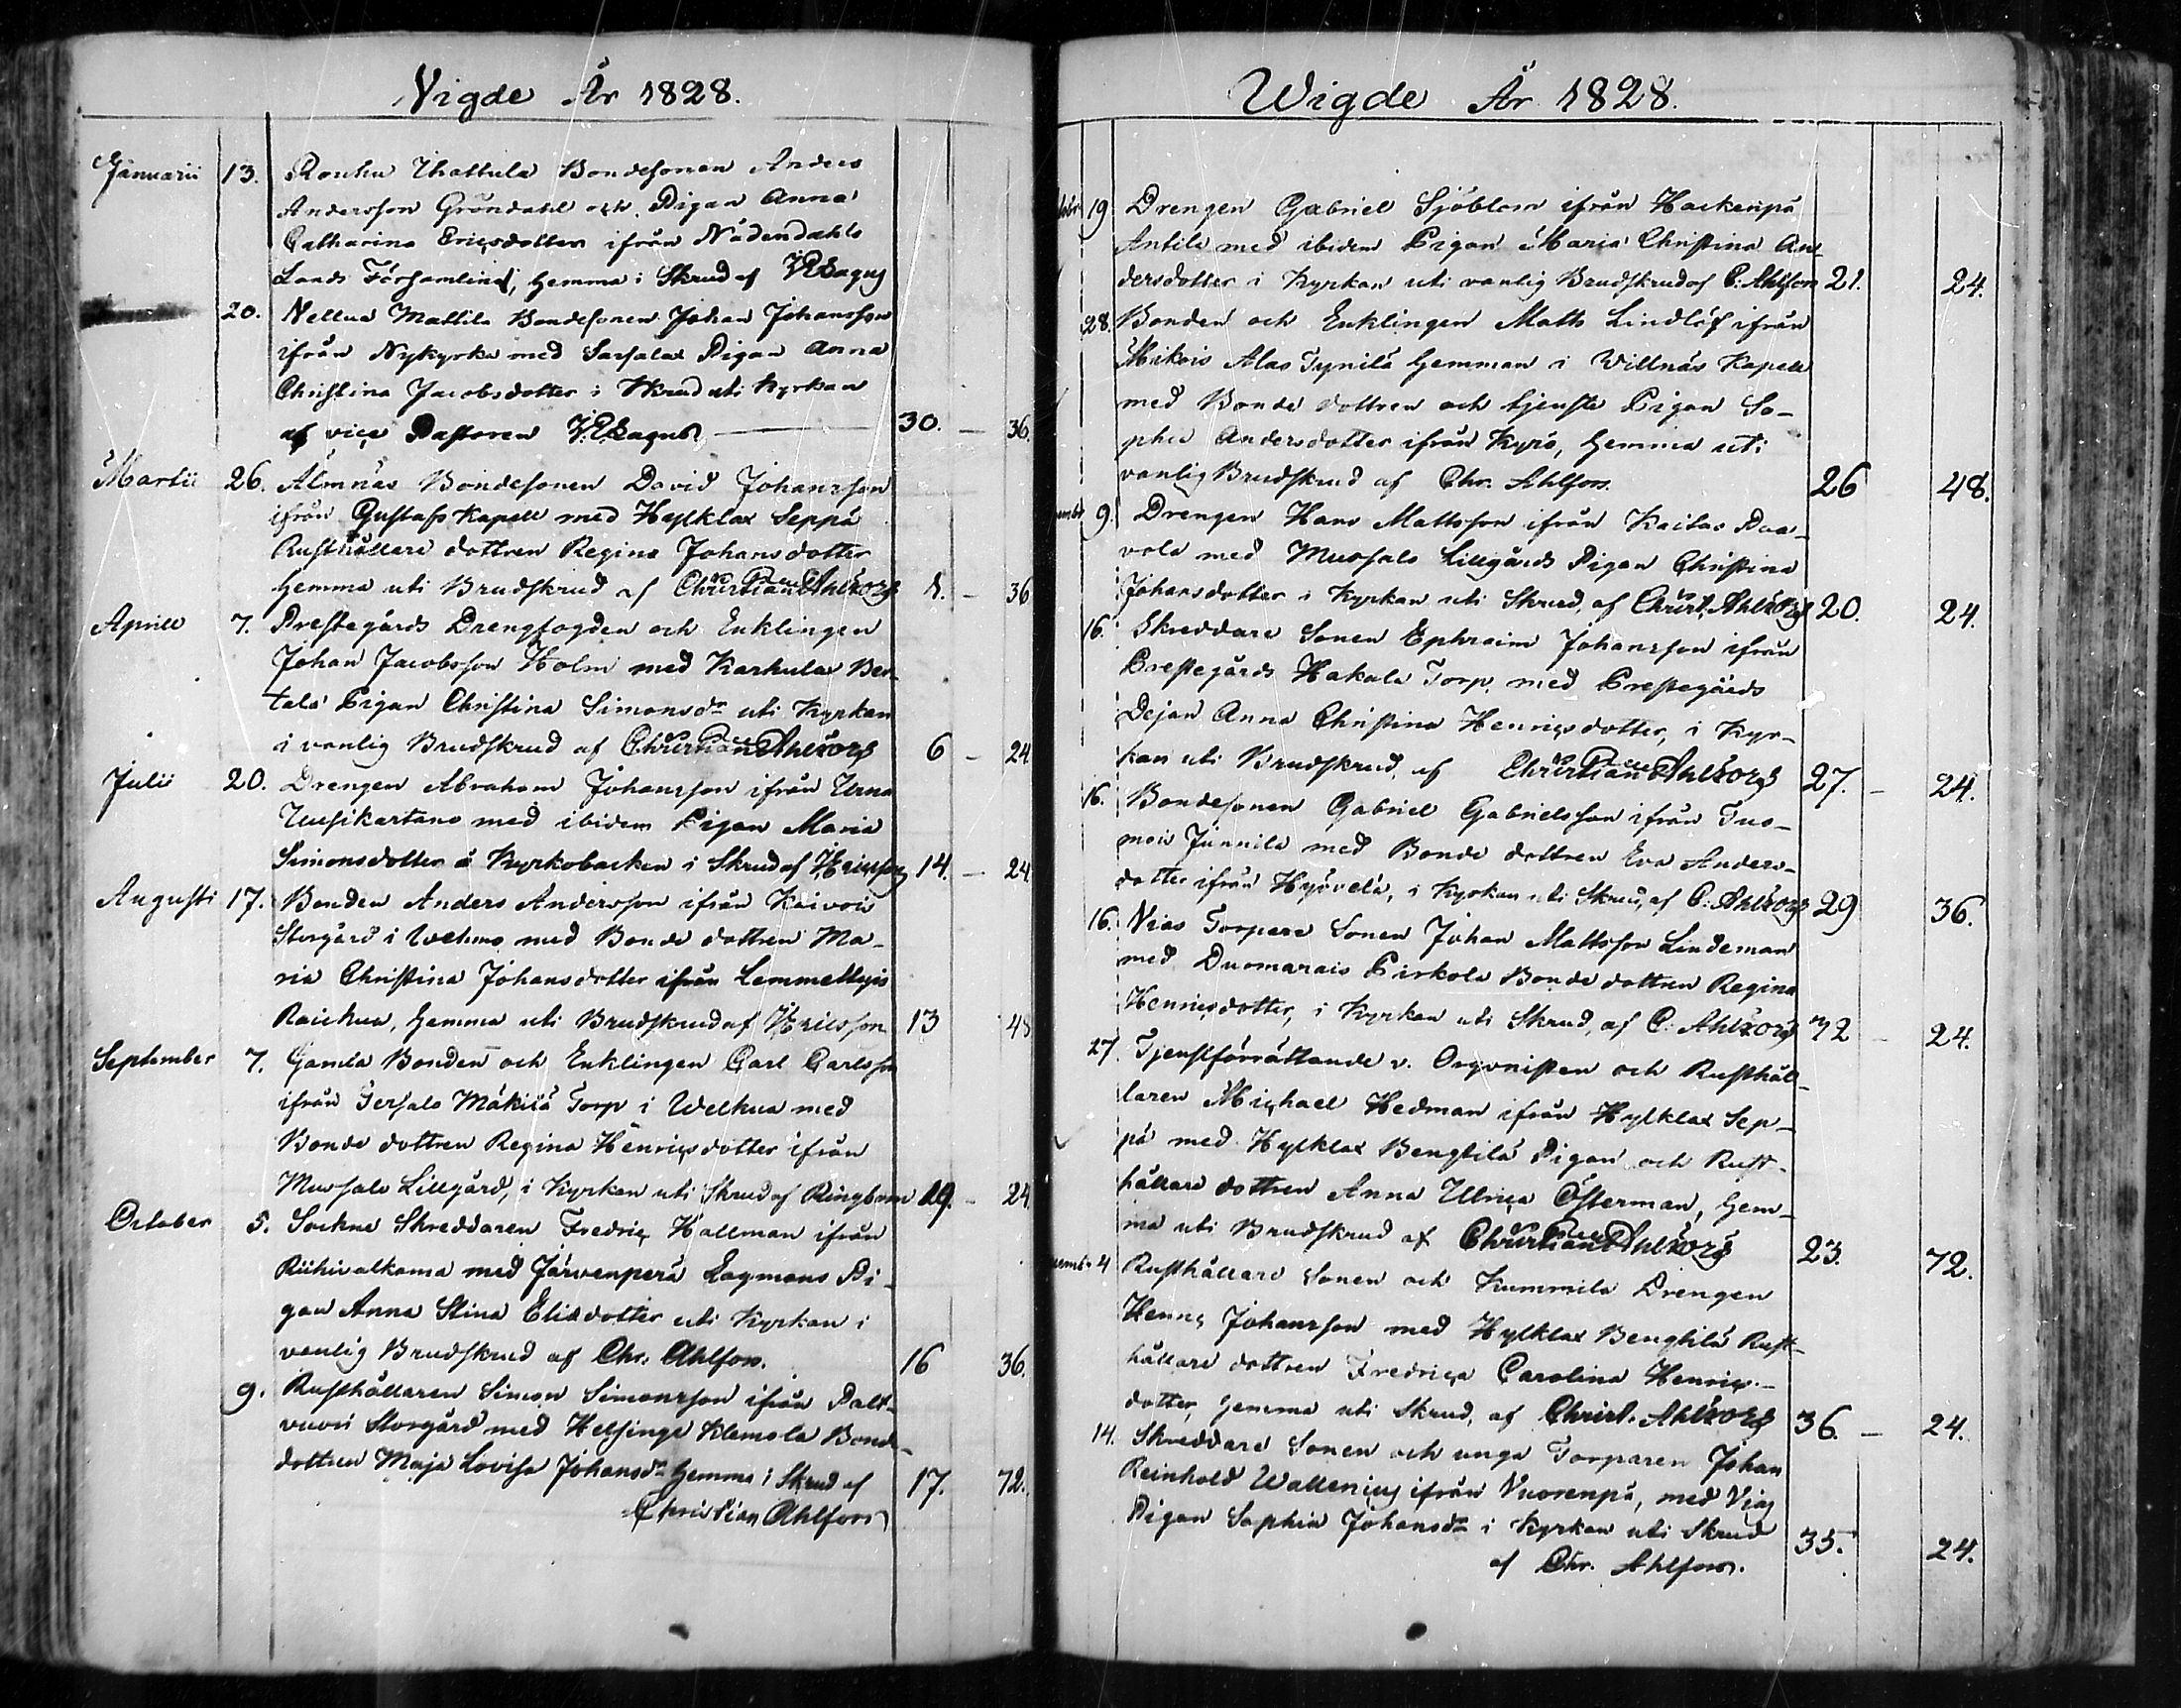 Vigde År 1828.
Januarii 13. Rouhu Thattula Bondesonen Anders
Andersson Gröndahl och Pigan Anna
Catharina Ericsdotter ifrån Nådendahls
Lands Församling, hemma i Skrud af
20. Nellua Mattila Bondesonen Johan Johansson
ifrån Nykyrka med Sarsalax Pigan Anna
Christina Jacobsdotter i Skrud uti Kyrkan
af vice Pastoren 30. — 36.
Martii 26. Almnäs Bondesonen David Johansson
ifrån Gustafs Kapell med Hylklax Seppä
Rusthållare dottren Regina Johansdotter
hemma uti Brudskrud af Christian Ahlfors 8. — 36
Aprill 7. Prestegårds Drengfogden och Enklingen
Johan Jacobsson Holm med Karhula Ber-
tala Pigan Christina Simonsdr uti Kyrkan
i vanlig Brudskrud af Christian Ahlfors 6 — 24
Julii 20. Drengen Abraham Johansson ifrån
Uusikartano med ibidem Pigan Maria
Simonsdotter å Kyrkobacken i Skrud af 14. — 24.
Augusti 17. Bonden Anders Andersson ifrån Kaivois
Storgård i Wehmo med Bonde dottren Ma-
ria Christina Johansdotter ifrån Lemmettyis
hemma uti Brudskrud af Ericsson 13 48
September 7. Gamla Bonden och Enklingen Carl Carlsson
ifrån Tersalo Mäkilä Torp i Welkua med
Bonde dottren Regina Henricsdotter ifrån
Mussalo Lillgård, i Kyrkan uti Skrud af Ringbom 19. — 24
October 5. Sockne Skreddaren Fredric Hallman ifrån
Riihivalkama med Järvenperä Lagmans Pi-
gan Anna Stina Elisdotter uti Kyrkan i
vanlig Brudskrud af Chr. Ahlfors. 16 36.
9. Rusthållaren Simon Simonsson ifrån Palt-
vuori Storgård med Helsinge Klemola Bonde-
dottren Maja Lovisa Johansdr hemma i Skrud af 17. 72.
Christian Ahlfors
Wigde År 1828.
19 Drengen Gabriel Sjöblom ifrån Hackenpä
Antila med ibidem Pigan Maria Christina An-
dersdotter i Kyrkan uti vanlig Brudskrud af C: Ahlfors 21. 24.
28. Bonden och Enklingen Matts Lindlöf ifrån
Mikois Alas Tynilä hemman i Willnäs Kapell
med Bonde dottren och tjenste Pigan So-
phia Andersdotter ifrån Kyrö, hemma uti
vanlig Brudskrud af Chr. Ahlfors. 26 48.
9. Drengen Hans Mattsson ifrån Kaitas Paa-
vola med Mussalo Lillgårds Pigan Christina
Johansdotter i Kyrkan uti Skrud, af Christ. Ahlfors 20. 24.
16. Skreddare Sonen Ephraim Johansson ifrån
Prestegårds Hakala Torp, med Prestegårds
Dejan Anna Christina Henricsdotter, i Kyr-
kan uti Brudskrud af Christian Ahlfors 27. — 24.
16. Bondesonen Gabriel Gabrielsson ifrån Tuo-
mois Junnila med Bonde dottren Eva Anders-
dotter ifrån Hyövelä, i Kyrkan uti Skrud, af C: Ahlfors 29 36.
16. Vias Torpare Sonen Johan Mattsson Lindeman
med Duomarais Pirkola Bonde dottren Regina
Henricsdotter, i Kyrkan uti Skrud, af C: Ahlfors 32 — 24.
27. Tjenstförrättande v. Organisten och Rusthål-
laren Michael Hedman ifrån Hylklax Sep-
pä med Hylklax Bengtilä Pigan och Rust-
hållare dottren Anna Ulrica Österman, hem-
ma uti Brudskrud af Christian Ahlfors 23. 72.
4 Rusthållare Sonen och Kummila Drengen
Henric Johansson med Hylklax Bengtilä Rust-
hållare dottren Fredrica Carolina Henrics-
dotter, hemma uti Skrud, af Christ. Ahlfors 36. — 24.
14. Skreddare Sonen och unga Torparen Johan
Reinhold Wallenius ifrån Vuorenpä, med Vias
Pigan Sophia Johansdr i Kyrkan uti Skrud
af Chr. Ahlfors. 35. 24.